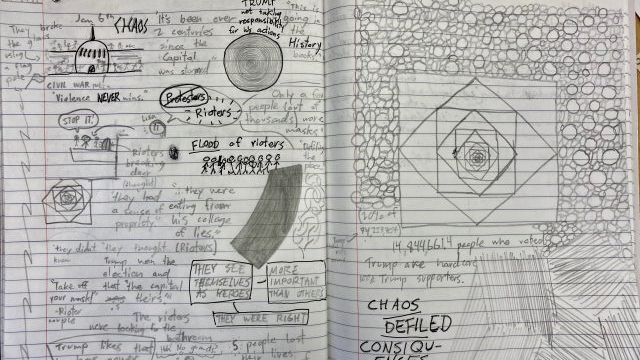 Jan 6th
CHAOS
They broke
the glass
using
CIVIL WAR
"Violence NEVER wins."
STOP IT!
It's been over
2 centuries
since the
Capital
was stormed
TRUMP
not taking
responsibility
for his actions
"This is
going in
the
History
books"
Protestors
Rioters
Only a few
people (out of
thousands) wore
masks
FLOOD of rioters
Rioters
breaking
door
(thought)
They had
a sense of
property.
"...they were
eating from
his collage
of lies."
"they didn't
know
they thought (Rioters)
Trump won the
election and
that the capital
was theirs"
"Take off
your mask"
-Rioter
The rioters
were looking for the
bathroom
THEY SEE
THEMSELVES
AS HEROES
MORE
IMPORTANT
THAN OTHERS
THEY WERE RIGHT
Trump likes that
No guards
5 people lost
their lives
20% of
74,223,
14,844,661.4 people who voted
Trump are hardcore
Trump supporters.
CHAOS
DEFILED
CONSIQU-
ENCES